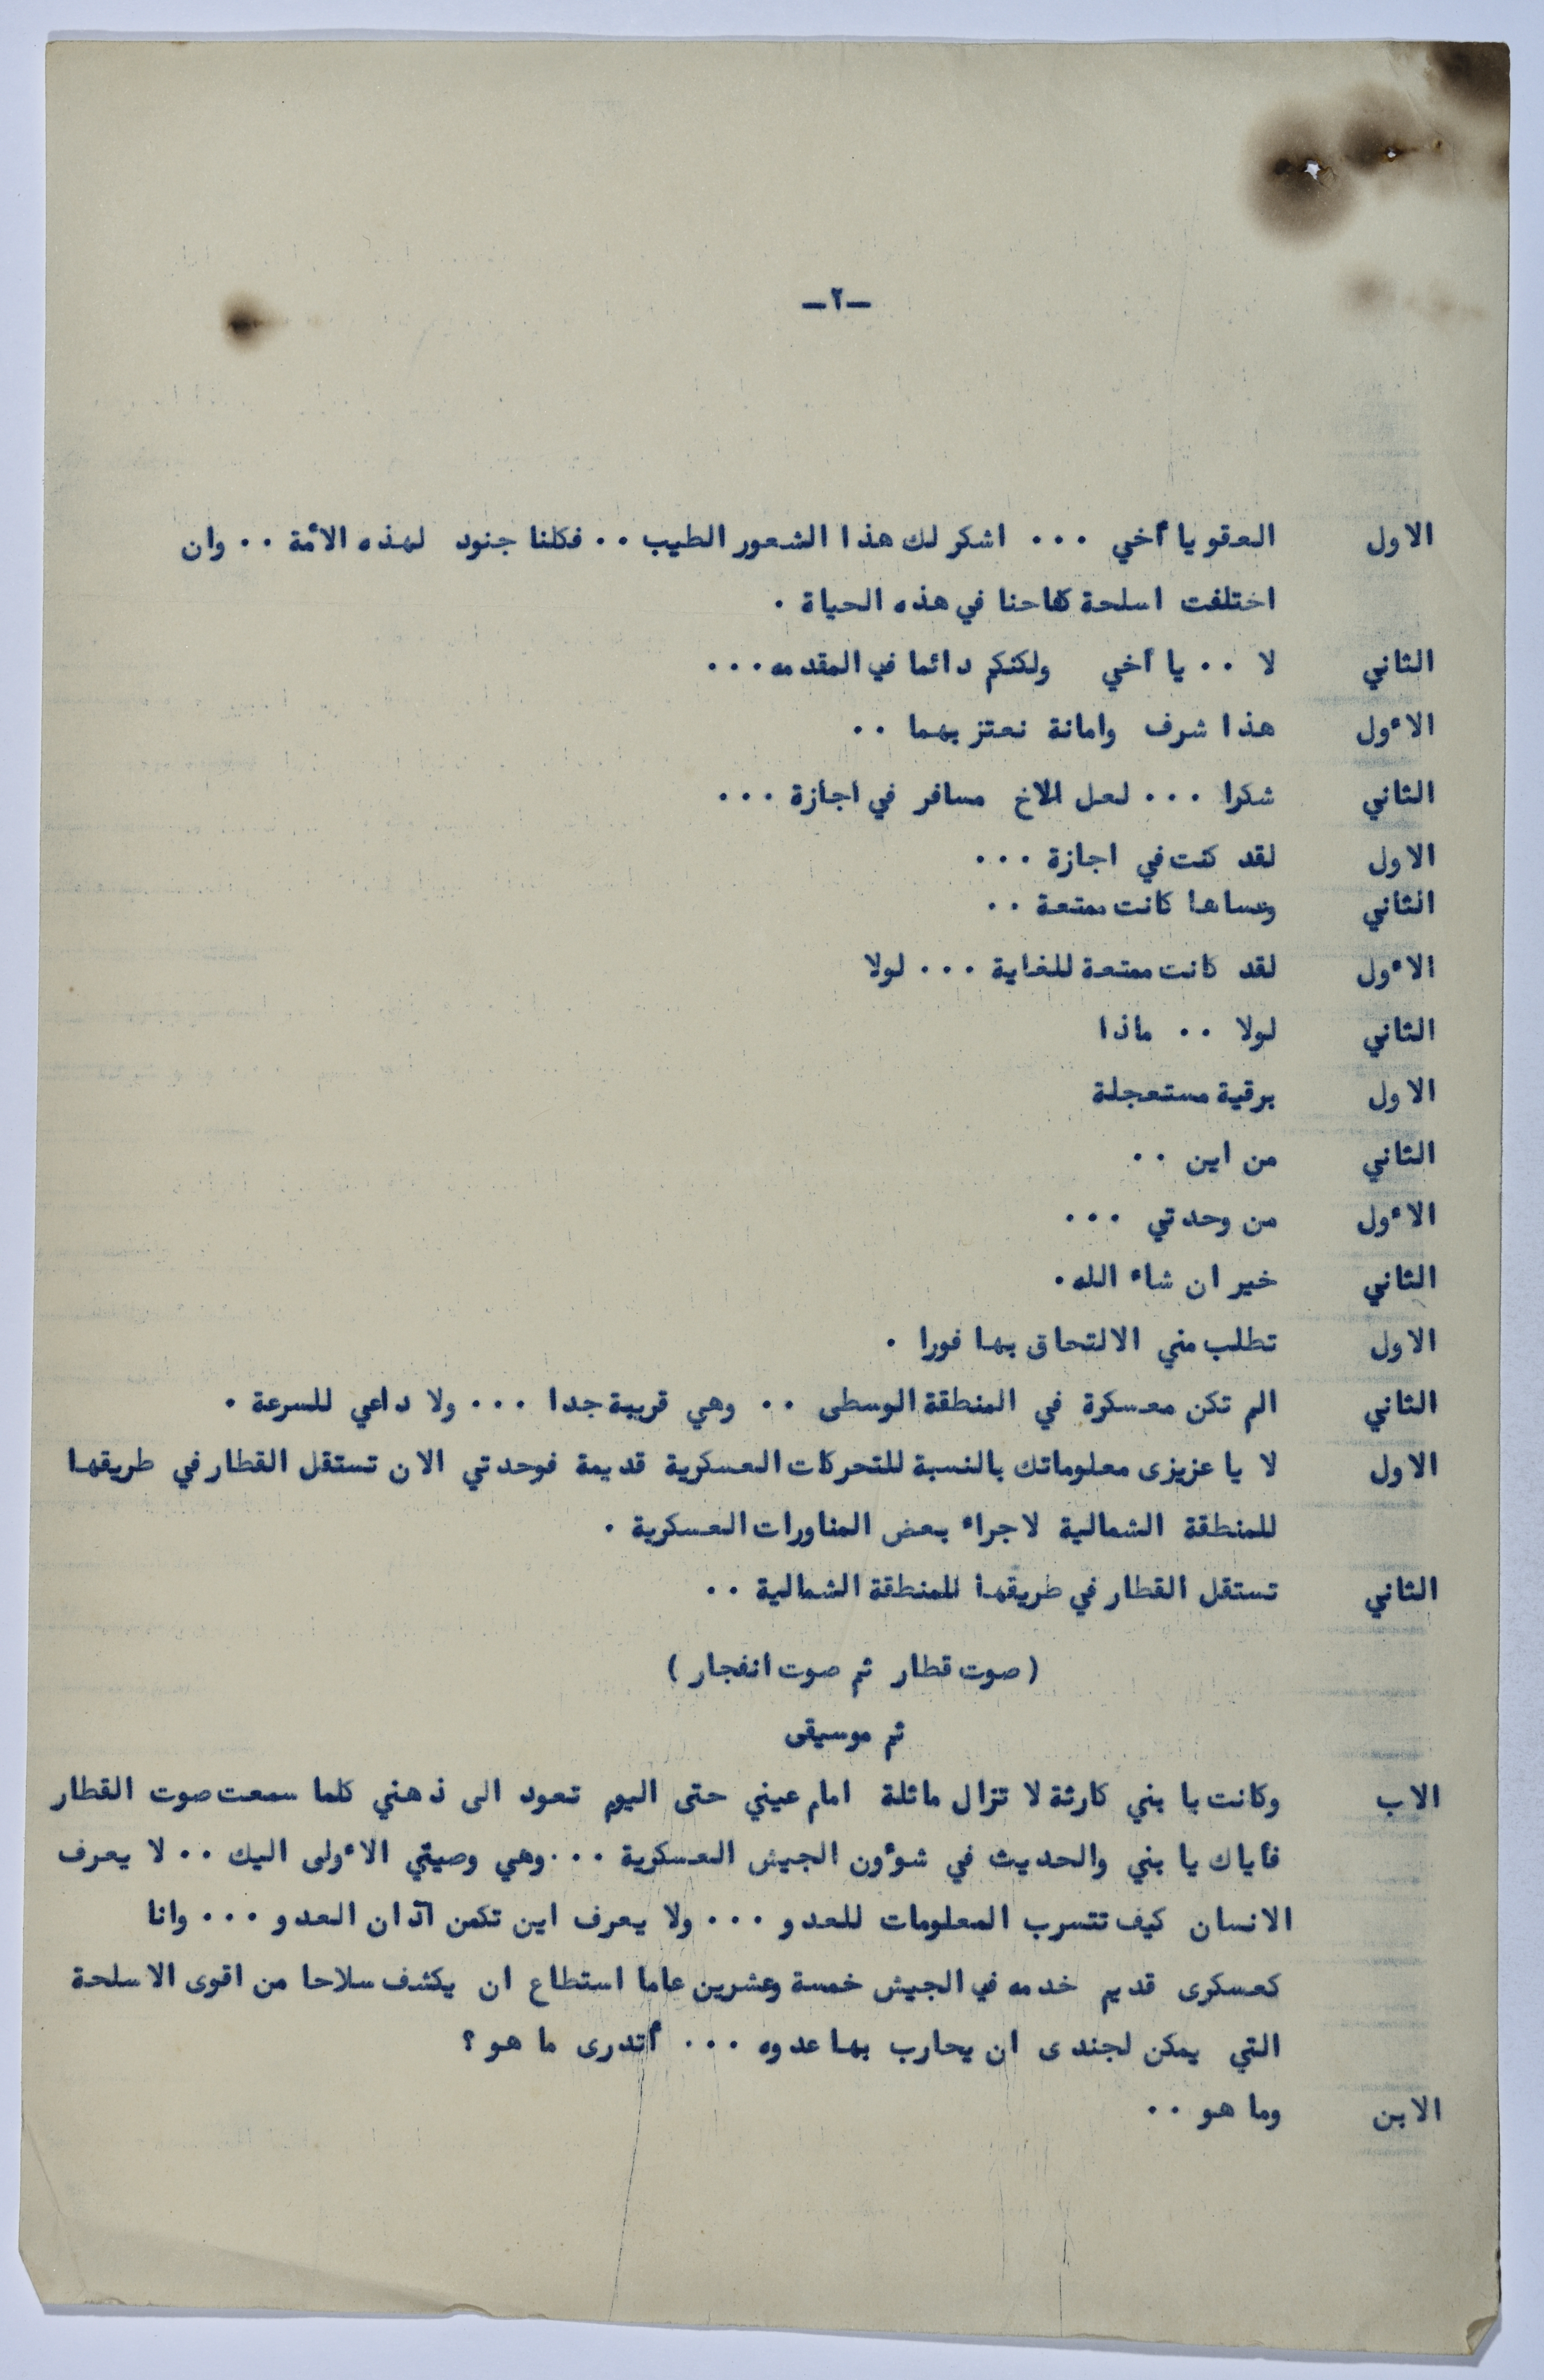 -٢-
الاول العفو يا أخي ... اشكر لك هذا الشعور الطيب .. فكلنا جنود لهذه الأمة .. وان
اختلفت اسلحة كفاحنا في هذه الحياة .
الثاني لا .. يا أخي ولكنكم دائما في المقدمه ...
الأول هذا شرف وامانة نعتز بهما ..
الثاني شكرا ... لعل الاخ مسافر في اجازة ...
الاول لقد كنت في اجازة ...
الثاني وعساها كانت ممتعة ..
الأول لقد كانت ممتعة للغاية ... لولا
الثاني لولا .. ماذا
الاول برقية مستعجلة
الثاني من اين ..
الأول من وحدتي ...
الثاني خير ان شاء الله .
الاول تطلب مني الالتحاق بها فورا .
الثاني الم تكن معسكرة في المنطقة الوسطى .. وهي قريبة جدا ... ولا داعي للسرعة .
الاول لا يا عزيزى معلوماتك بالنسبة للتحركات العسكرية قديمة فوحدتي الان تستقل القطار في طريقها
للمنطقة الشمالية لاجراء بعض المناورات العسكرية .
الثاني تستقل القطار في طريقها للمنطقة الشمالية ..
( صوت قطار ثم صوت انفجار )
ثم موسيقى
الاب وكانت يا بني كارثة لا تزال ماثلة امام عيني حتى اليوم تعود الى ذهني كلما سمعت صوت القطار
فأياك يا بني والحديث في شوؤن الجيش العسكرية ... وهي وصيتي الأولى اليك .. لا يعرف
الانسان كيف تتسرب المعلومات للعدو ... ولا يعرف اين تكمن آذان العدو ... وانا
كعسكرى قديم خدمه في الجيش خمسة وعشرين عاما استطاع ان يكشف سلاحا من اقوى الاسلحة
التي يمكن لجندى ان يحارب بها عدوه ... أتدرى ما هو ؟
الابن وما هو ..